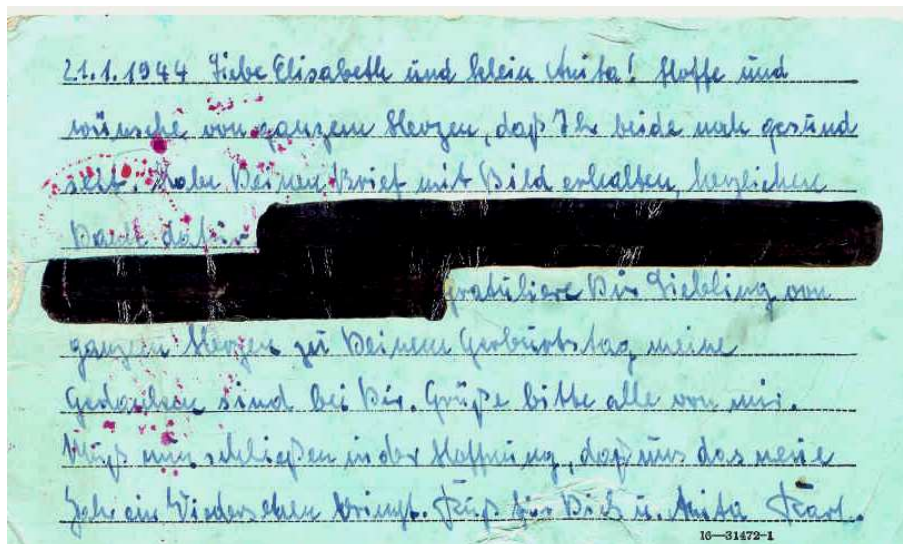 21.1.1944 Liebe Elisabeth und klein Anita! Hoffe und
wünsche von ganzem Herzen, daß Ihr beide noch gesund
seit. Habe Deinen Brief mit Bild erhalten, herzlichen
Dank dafür
gratuliere Dir Liebling von
ganzem Herzen zu Deinem Geburtstag meine
Gedanken sind bei Dir. Grüße bitte alle von mir.
Muß nun schließen in der Hoffnung, daß uns das neue
Jahr ein Wiedersehen bringt. Kuß für Dich u. Anita Karl.
16—31472-1